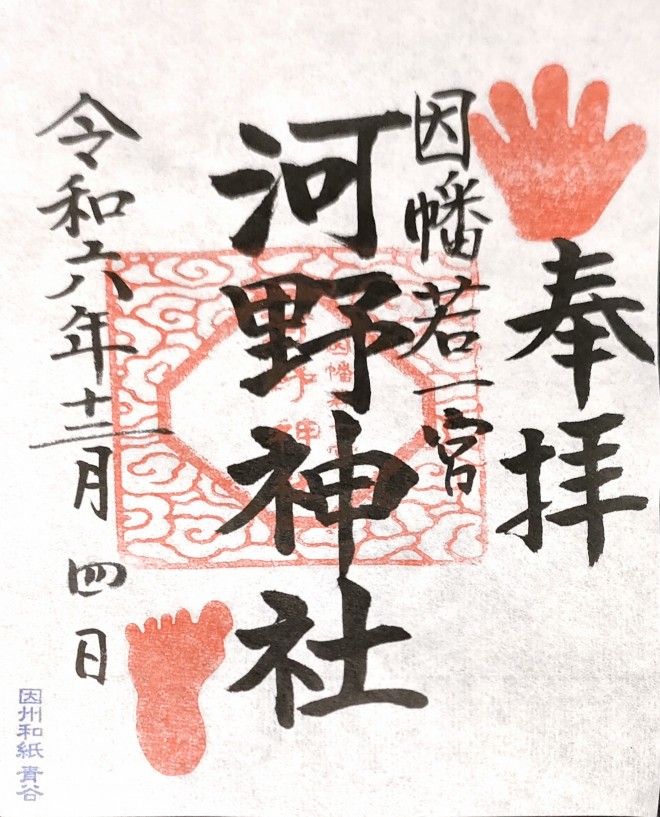 奉拝
因幡若一宮
河野神社
令和六年十二月四日
因州和紙 青谷